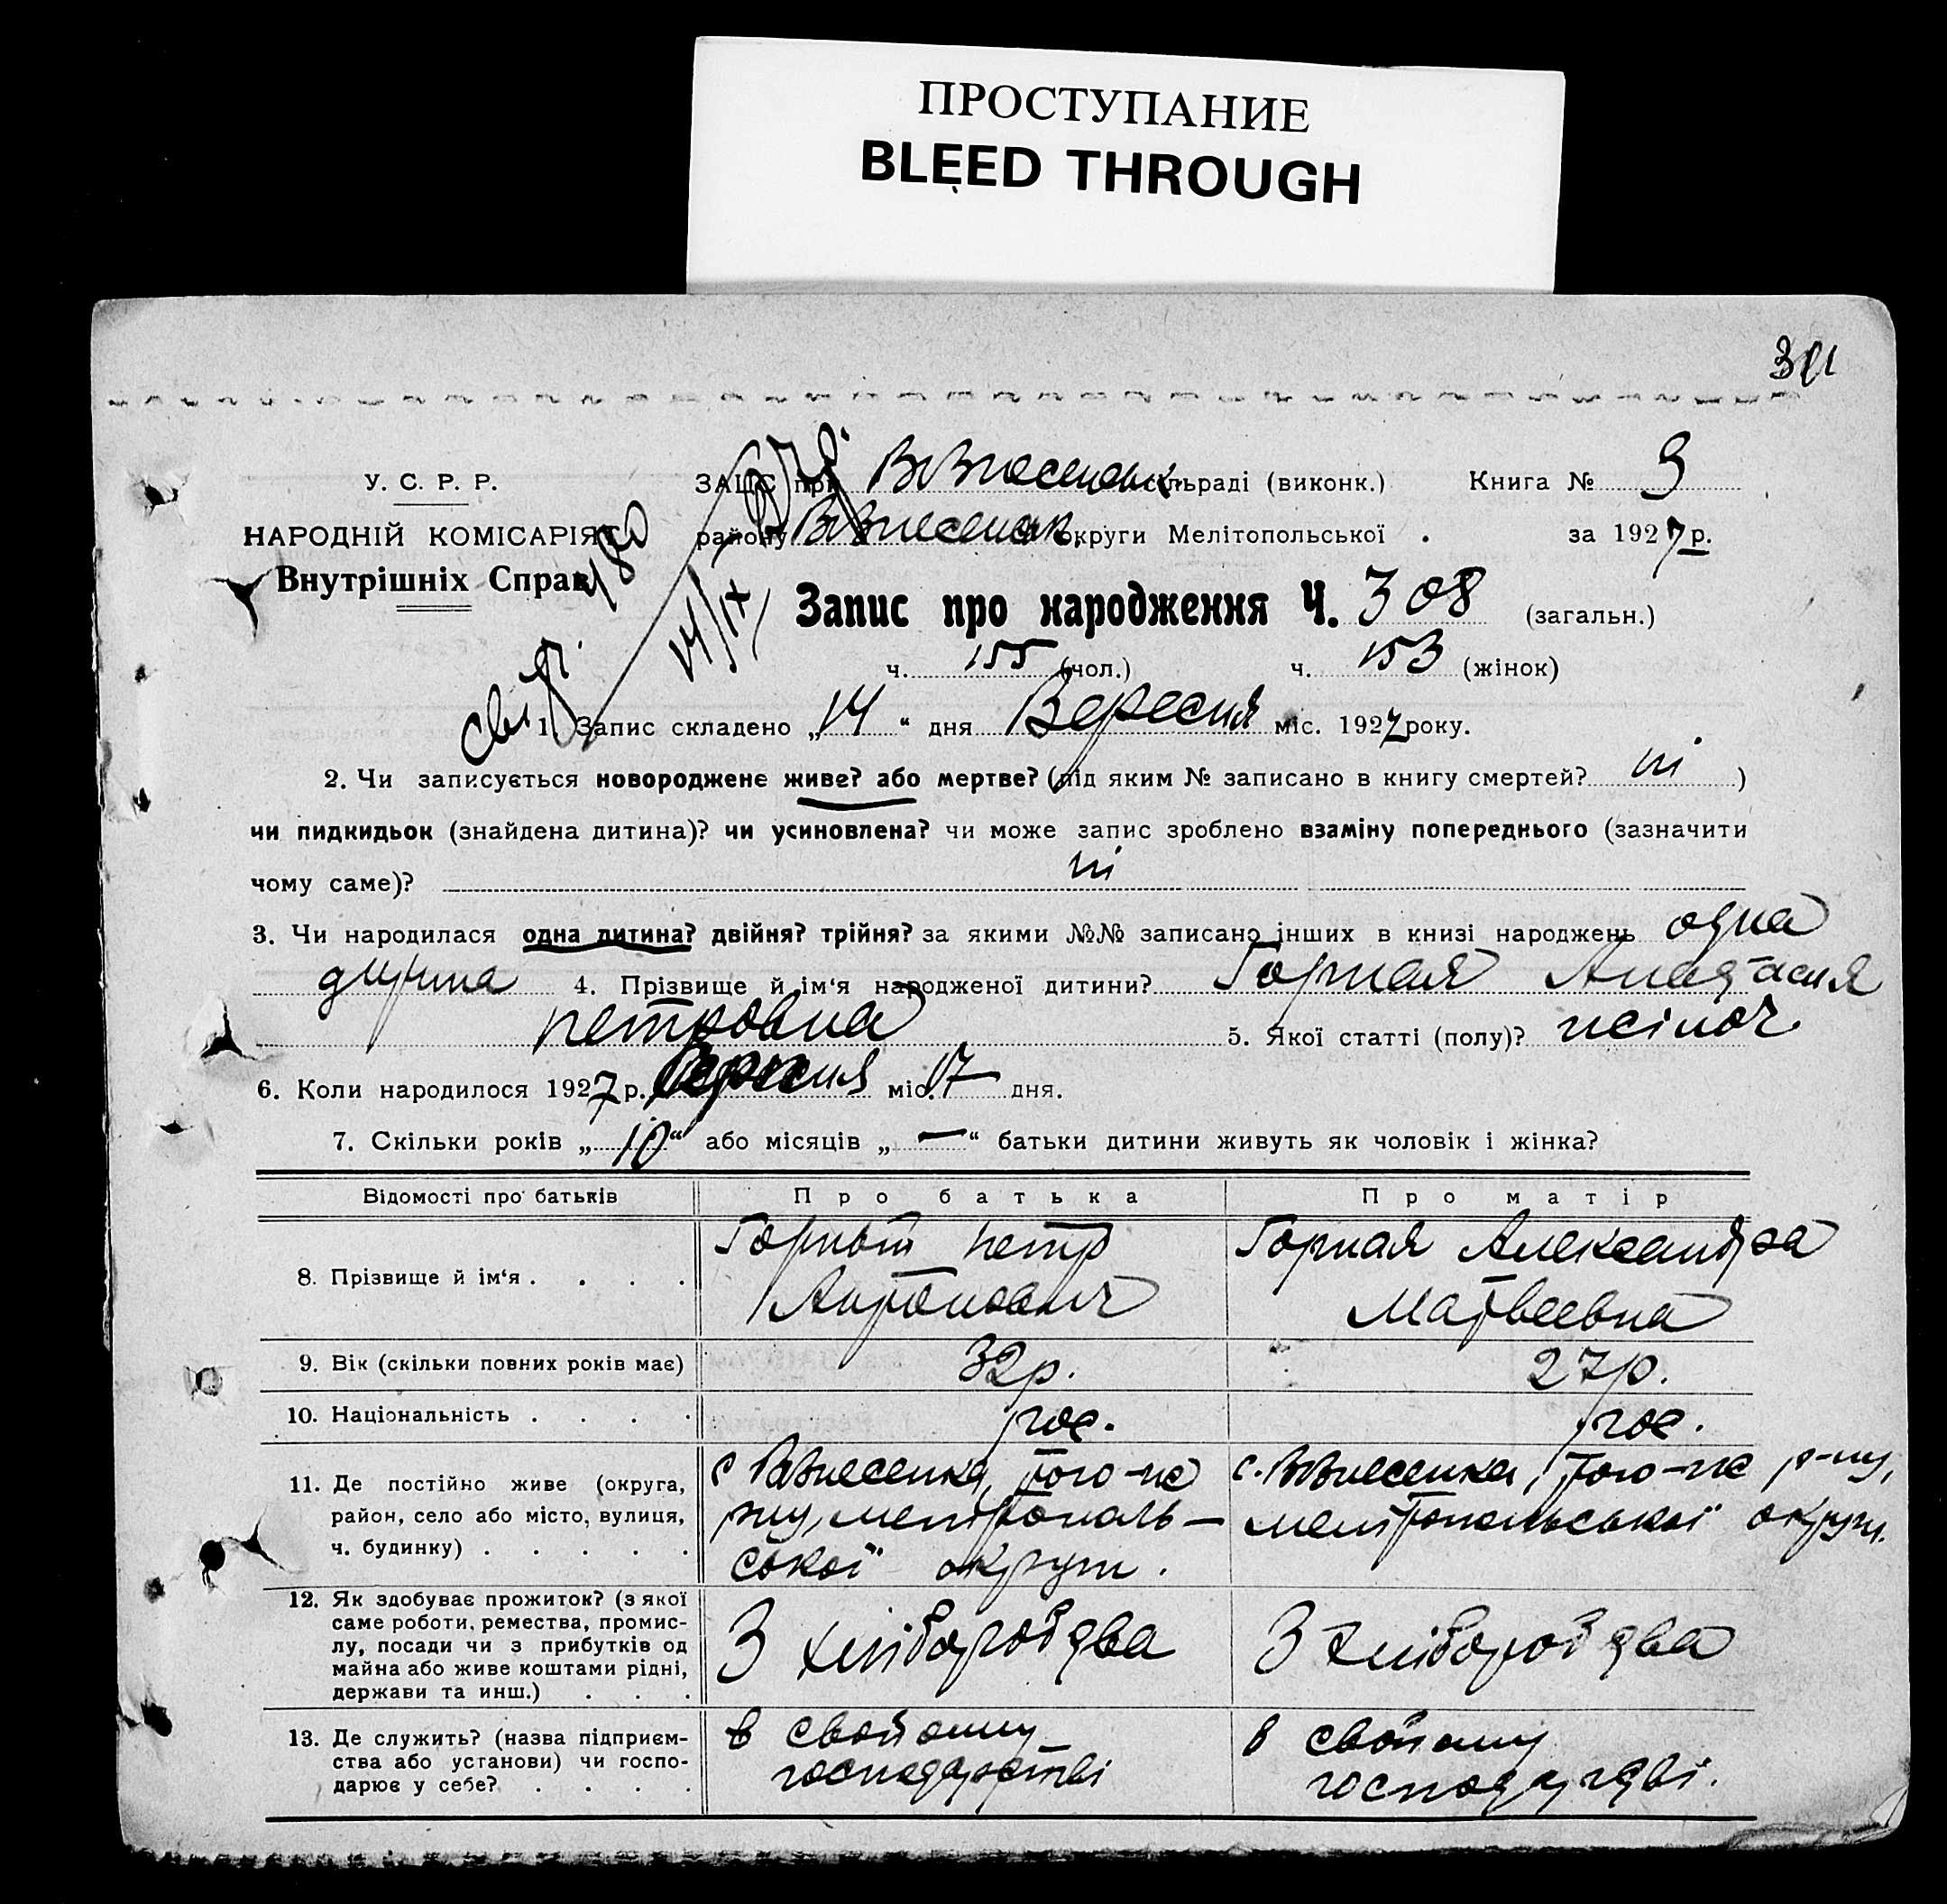 ПРОСТУПАНИЕ
BLEED THROUGH
У. С. Р. Р.
НАРОДНІЙ КОМІСАРІЯТ
Внутрішніх Справ
ЗАПИС при Вознесенськ. сільраді (виконк.) Книга № 3
району Вознесенськ. округи Мелітопольської . за 1927 р.
Запис про народження Ч. 308 (загальн.)
ч. 155 (чол.) ч. 153 (жінок)
14/IX
1. Запис складено „14“ дня Вересня міс. 1927 року.
2. Чи записується новороджене живе? або мертве? (під яким № записано в книгу смертей? ні )
чи пидкидьок (знайдена дитина)? чи усиновлена? чи може запис зроблено взаміну попереднього (зазначити
чому саме)? ні
3. Чи народилася одна дитина? двійня? трійня? за якими №№ записано інших в книзі народжень одна
дитина 4. Прізвище й ім‘я народженої дитини? Горная Анастасия
Петровна 5. Якої статті (полу)? жіноч.
6. Коли народилося 1927 р. Вересня міс. дня.
7. Скільки років „10“ або місяців „—“ батьки дитини живуть як чоловік і жінка?
Відомості про батьків Про батька Про матір
8. Прізвище й ім‘я . . . . Горный Петр Горная Александра
Антонович Матвеевна
9. Вік (скільки повних років має) 32 р. 27 р.
10. Національність . . . . рос. рос.
11. Де постійно живе (округа, с Вознесенка, того-ж с. Вознесенка, того-ж р-ну,
район, село або місто, вулиця, рну, мелітополь— мелітопольської округи.
ч. будинку) . . . . . ської округи.
12. Як здобуває прожиток? (з якої
саме роботи, ремества, промис-
лу, посади чи з прибутків од З хліборобдва З хліборобдва
майна або живе коштами рідні,
держави та инш.) . . .
13. Де служить? (назва підприєм- в свойому в свойому
ства або установи) чи госпо- господарстві господарстві.
дарює у себе? . . . .